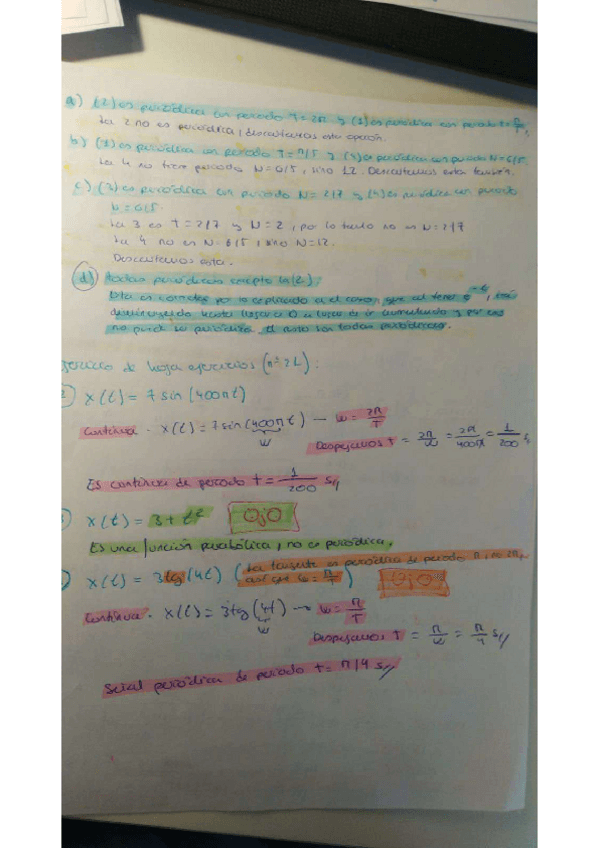 a) (2) es periódica con periodo T=2π y (1) es periódica con periodo
La 2 no es periódica, descartamos esta opción.
b) (1) es periódica con periodo T=π/5 y (4) es periódica con periodo N=6/5
La 4 no tiene periodo N=6/5, sino 12. Descartamos esta también.
c) (3) es periódica con periodo N=2/7 y (4) es periódica con periodo
N=6/5.
La 3 es T=2/7 y N=2, por lo tanto no es N=2/7
La 4 no es N=6/5, sino N=12.
Descartamos esta.
d) todas periódicas excepto la (2).
Esta es correcta por lo explicado en el que al tener e^-t, irá
disminuyendo hasta llegar a 0 o luego de ir aumentando y por eso
no puede ser periódica. El resto son todas periódicas.
ejercicio de hoja ejercicios (nº 2L):
x(t) = 7 sin(400πt)
Continua. x(t) = 7 sin(400πt) → w = 2π/T
w
Despejamos T = 2π/w = 2π/400π = 1/200 s
Es continua de periodo T = 1/200 s
x(t) = 3 + t² OjO
Es una función parabólica, no es periódica.
x(t) = 3tg(4t) (La tangente es periódica de periodo π, no 2π,
así que w = π/T) OjO
Continua. x(t) = 3tg(4t) → w = π/T
w
Despejamos T = π/w = π/4 s
Señal periódica de periodo T = π/4 s